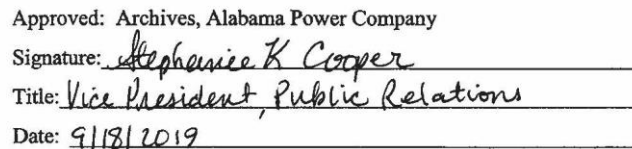 Approved: Archives, Alabama Power Company
Signature: Stephanie K Cooper
Title: Vice President, Public Relations
Date: 9/18/2019